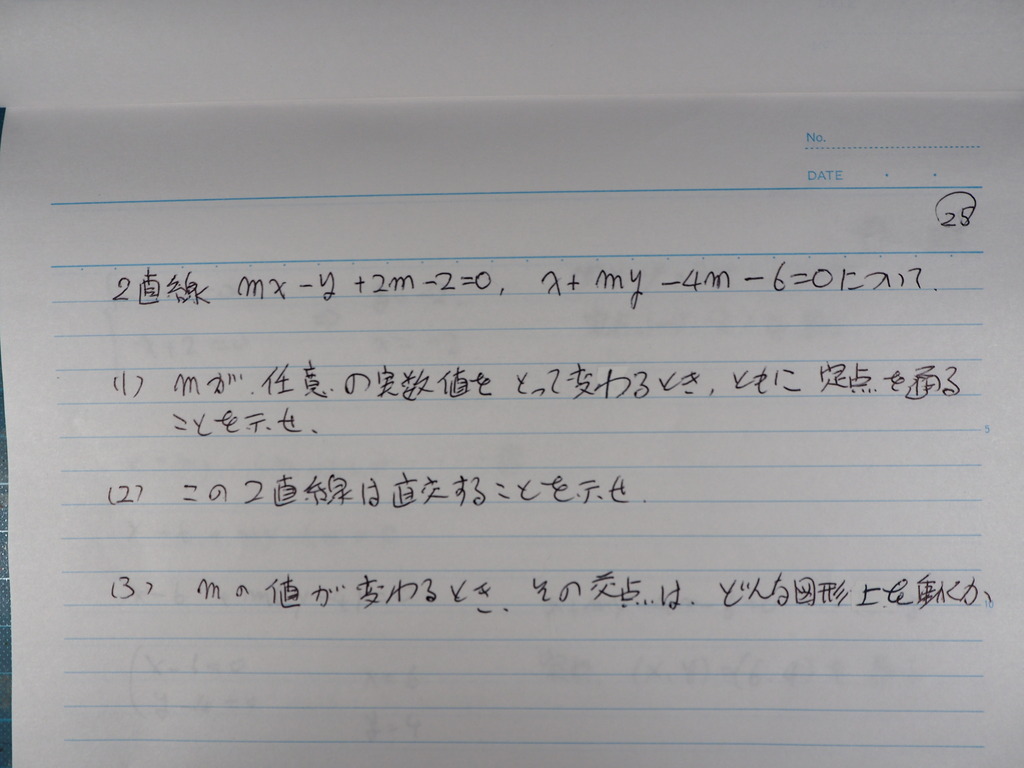 No.
DATE
28
2直線 mx-y+2m-2=0, x+my-4m-6=0について.
(1) mが任意の実数値をとって変わるとき,ともに定点を通る
ことを示せ、
5
(2) この2直線は直交することを示せ.
(3) mの値が変わるとき、その交点は、どんな図形上を動くか、
10